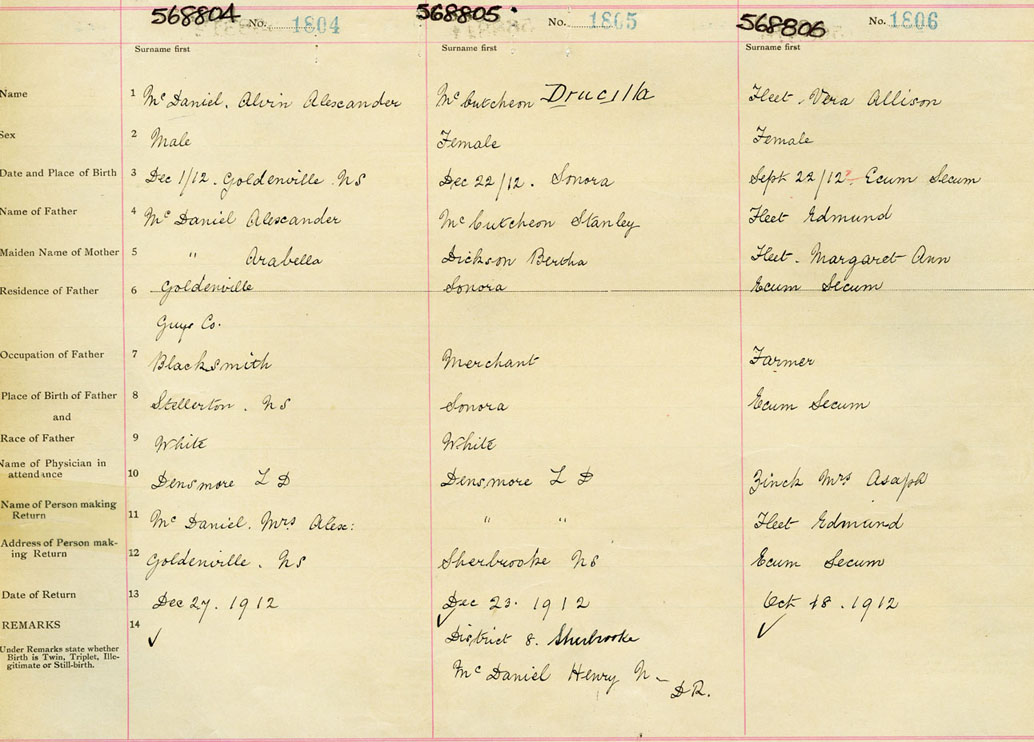 568804 No. 1804 568805 No. 1805 568806 No. 1806
Surname first Surname first Surname first
Name 1 McDaniel. Alvin Alescander McCutcheon Drucilla Fleet. Vera Allison
Sex 2 Male Female Female
Date and Place of Birth 3 Dec 1/12. Goldenville NS Dec 22/12. Sonora Sept 22/12? Ecum Secum
Name of Father 4 McDaniel Alescander McCutcheon Stanley Fleet Edmund
Maiden Name of Mother 5 " Arabella Dickson Bertha Fleet. Margaret Ann
Residence of Father 6 Goldenville Sonora Ecum Secum
Guys Co.
Occupation of Father 7 Blacksmith Merchant Farmer
Place of Birth of Father 8 Stellerton. NS Sonora Ecum Secum
and
Race of Father 9 White White
Name of Physician in
attendance 10 Densmore L D Densmore L D Zinck Mrs Asaph
Name of Person making
Return 11 McDaniel. Mrs Alex: " " Fleet Edmund
Address of Person mak-
ing Return 12 Goldenville. NS Sherbrooke NS Ecum Secum
Date of Return 13 Dec 27. 1912 Dec 23. 1912 Oct 18. 1912
REMARKS 14 ✓ ✓ ✓
District 8. Sherbrooke
Under Remarks state whether
Birth is Twin, Triplet, Ille-
gitimate or Still-birth.
McDaniel Henry N
D R.